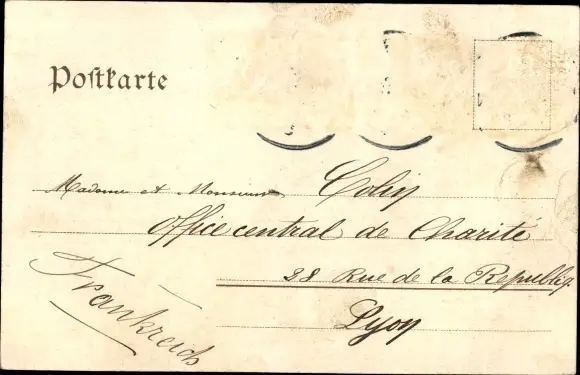 Postkarte
Madame et Monsieur Colin
Office central de Charité
28 Rue de la Republiq.
Lyon
Frankreich